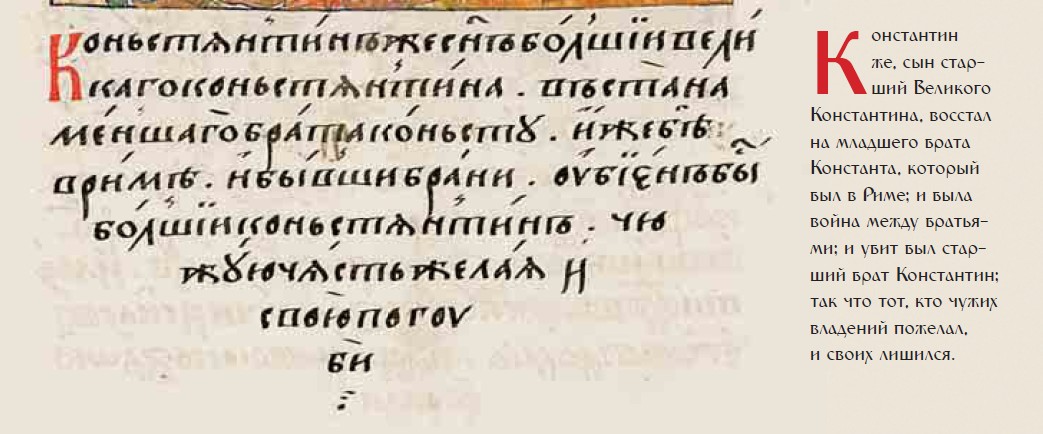 Коньстѧнтїнъжесн҃ъбо́лшїйвели́
кагоконьстѧнтїна . въста̀на
ме́ншагобра́таконьстꙋ . и҆жебѣ
ври́мѣ . и҆бы́вшибра́ни . ѹ҆бїе́нъбы̑
бо́лшїйконьстѧнтїнъ . чю
жꙋ́ючѧ́стьжела́ѧ и҆
своюпогѹ
бѝ
Константин
же, сын стар-
ший Великого
Константина, восстал
на младшего брата
Константа, который
был в Риме; и была
война между братья-
ми; и убит был стар-
ший брат Константин;
так что тот, кто чужих
владений пожелал,
и своих лишился.